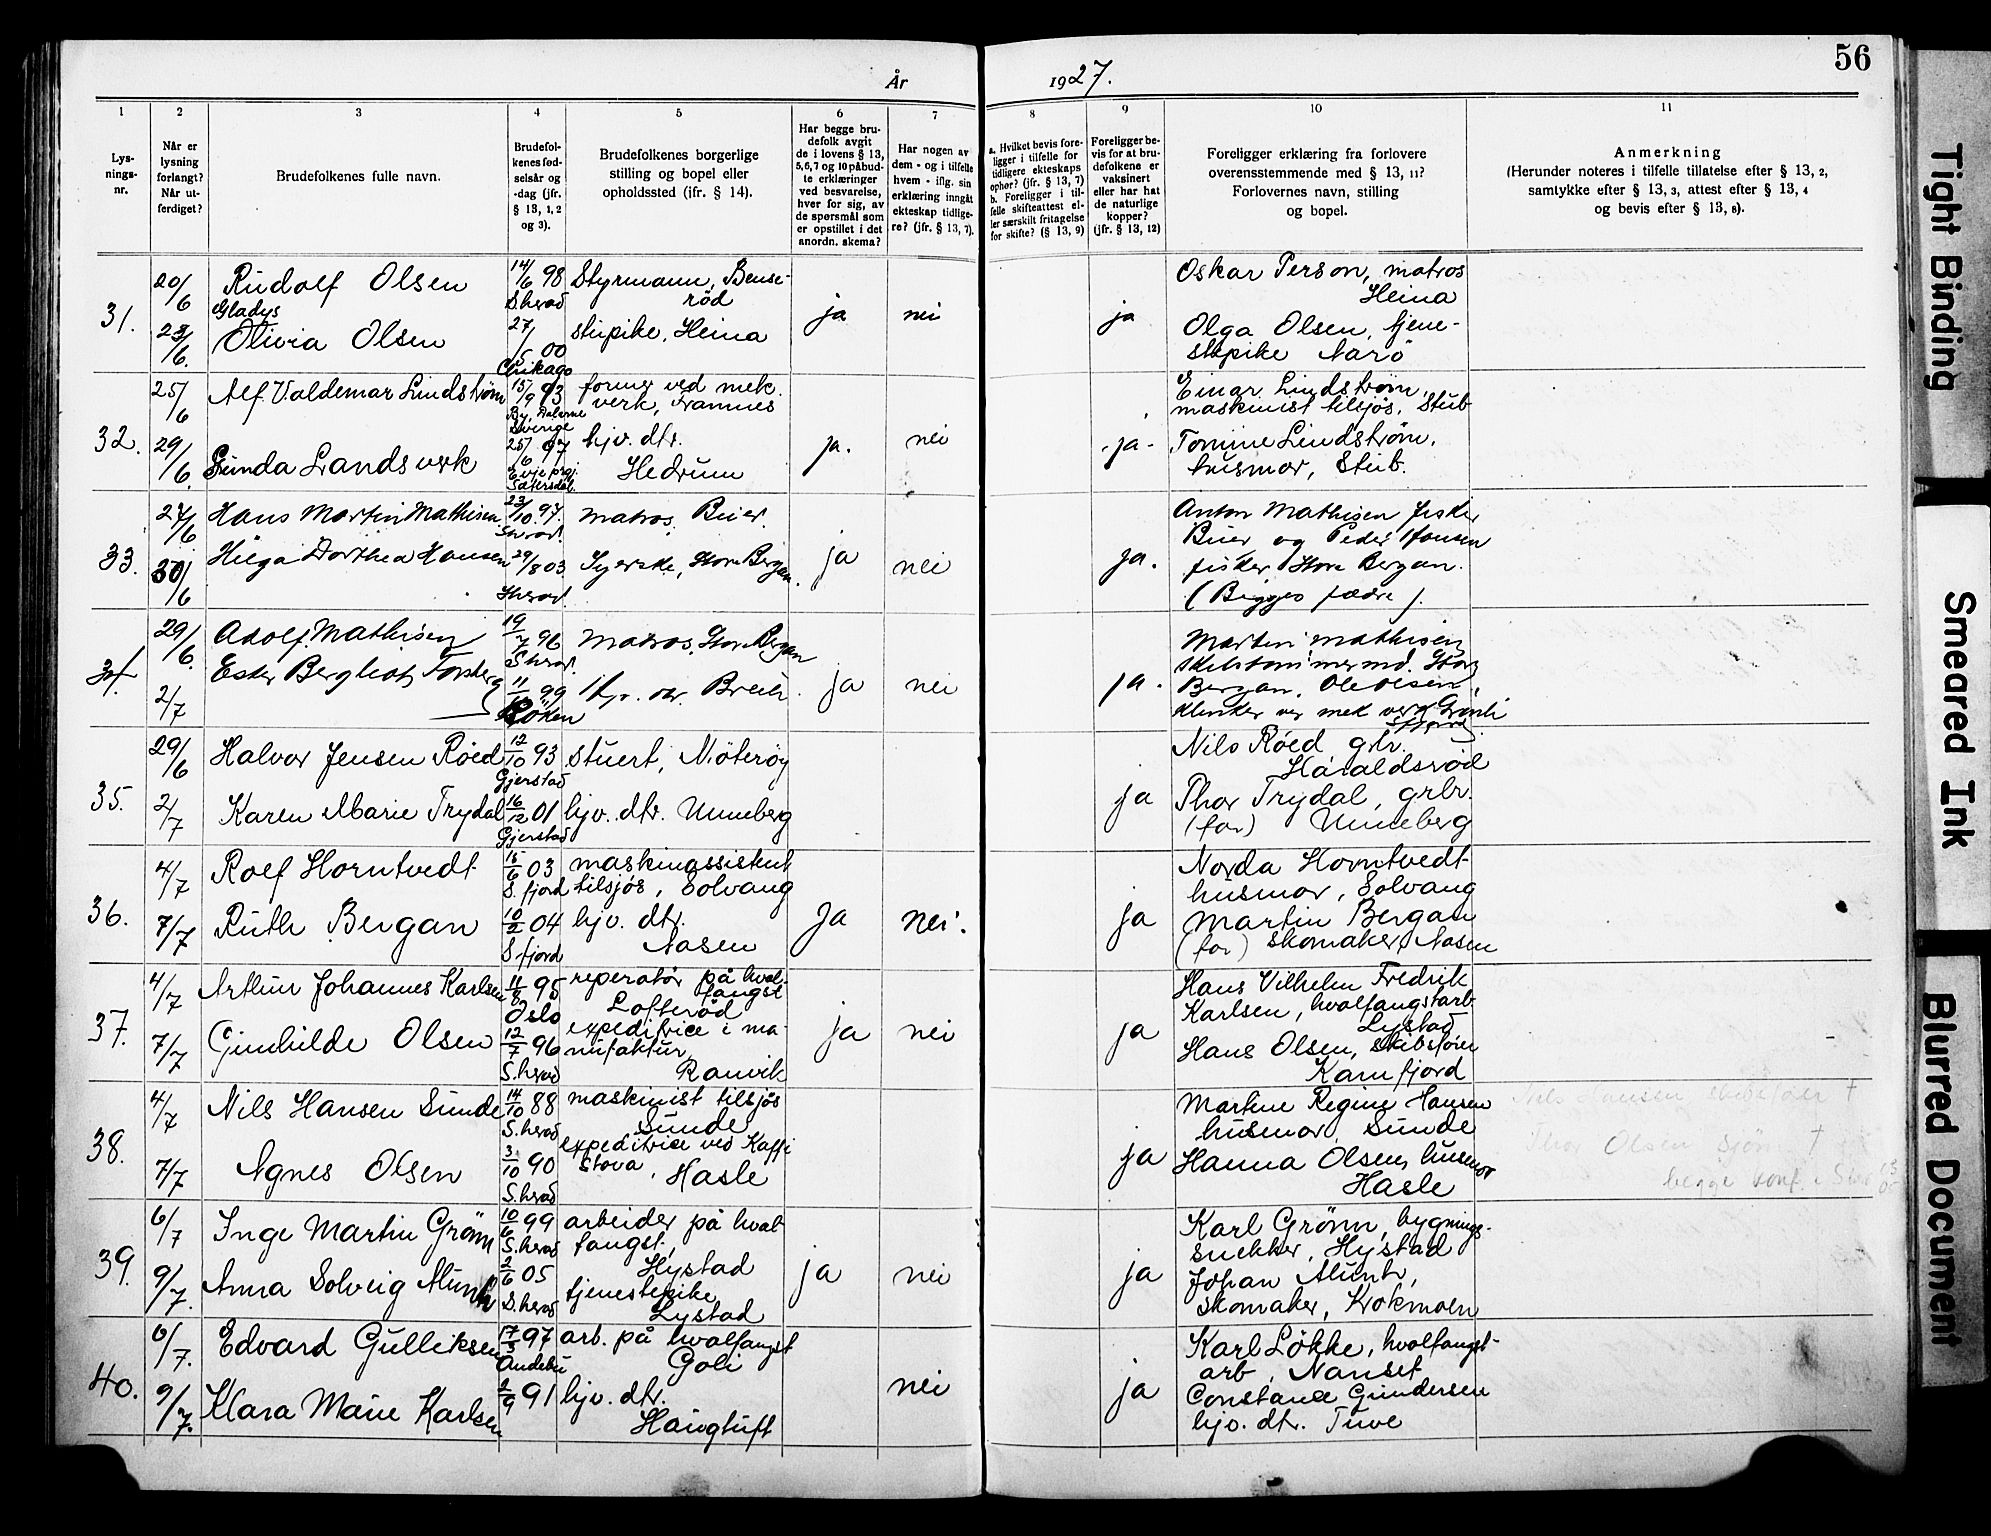 56
År 1927.
1 2 3 4 5 6 7 8 9 10 11
Lys-
nings-
nr.
Når er
lysning
forlangt?
Når ut-
ferdiget?
Brudefolkenes fulle navn.
Brudefol-
kenes fød-
selsår og
-dag (jfr.
§ 13, 1, 2
og 3).
Brudefolkenes borgerlige
stilling og bopel eller
opholdssted (ifr. § 14).
Har begge bru-
defolk avgit
de i lovens § 13,
5,6,7 og 10 påbud-
te erklæringer
ved besvarelse,
hver for sig, av
de spørsmål som
er opstillet i det
anordn. skema?
Har nogen av
dem - og i tilfelle
hvem - iflg. sin
erklæring inngåt
ekteskap tidlige-
re? (jfr. § 13, 7).
a. Hvilket bevis fore-
ligger i tilfelle for
tidligere ekteskaps
ophør? (jfr. § 13, 7)
b. Foreligger i til-
felle skifteattest el-
ler særskilt fritagelse
for skifte? (§ 13, 9)
Foreligger be-
vis for at bru-
defolkene er
vaksinert
eller har hat
de naturlige
kopper?
(jfr. § 13, 12)
Foreligger erklæring fra forlovere
overensstemmende med § 13, 11?
Forlovernes navn, stilling
og bopel.
Anmerkning
(Herunder noteres i tilfelle tillatelse efter § 13, 2,
samtykke efter § 13, 3, attest efter § 13, 4
og bevis efter § 13, 8).
31.
20/6
23/6
Rudolf Olsen
Gladys
Olivia Olsen
14/6 98
S.herad
27/5 00
Chikago
Styrmann, Bense-
röd
stupike, Heina
ja
nei
ja
Oskar Person, matros
Heina
Olga Olsen, tjene-
stepike Narö
32.
25/6
29/6
Alf Valdemar Lindstrøm
Gunda Landsverk
15/9 93
By, Dalarne
Sverige
25/6 97
Evje prgj.
Sætersdal.
former ved mek.
verk, Framnes
hjv. dtr.
Hedrum
ja.
nei
ja-
Einar Lindstrøm,
maskinist tilsjøs, Stub
Tomine Lindstrøm,
husmor, Stub.
33.
27/6
30/6
Hans Martin Mathisen
Helga Dorthea Hansen
23/10 97.
29/8 03
S.herad.
matros, Beier.
Syerske, Store Bergan.
ja
nei
ja.
Anton Mathisen fisker
Beier og Peder Hansen
fisker Store Bergan.
(Begges fædre).
34.
29/6
2/7
Adolf Mathisen
Ester Bergliot Forsberg
19/7 96
S.herad.
11/11 99
Röken
matros, Store Bergan
ja
nei
ja.
Martin Mathisen
Store
Bergan, Ole Olsen,
klinker ved mek verk
35.
29/6
2/7
Halvor Jensen Røed
Karen Marie Trydal
12/10 93
Gjerstad
16/12 01
Gjerstad
stuert, Nöteröy
hjv. dtr. Unneberg
ja
Nils Röed grbr.
Haraldsröd
Thor Trydal, grbr.
(far) Unneberg
36.
4/7
7/7
Rolf Horntvedt
Ruth Bergan
15/6 03
S.fjord
10/2 04
S.fjord
maskinassistent
tilsjös, Solvang
hjv. dtr.
Nasen
Ja
nei.
ja
Norda Horntvedt
husmor, Solvang
Martin Bergan
(far) skomaker, Nasen
37.
4/7
7/7
Arthur Johannes Karlsen
Gunhilde Olsen
11/8 95
Oslo
12/7 96
S.herad
reperatör på hval-
fangst
Lofteröd
expeditrice i ma-
nufaktur,
Ranvik
ja
nei
ja
Hans Vilhelm Fredrik
Karlsen, hvalfangstarb
Lystad
Hans Olsen, skibsfører
Kamfjord
38.
4/7
7/7
Nils Hansen Sunde
Agnes Olsen
14/10 88
S.herad
3/10 90
S.herad
maskinist tilsjös
Sunde
expeditrice ved Kaffi
Stova, Hasle
ja
Martine Regine Hansen
husmor, Sunde
Hanna Olsen, husmor
Hasle
Nils Hansen skibsfører †
Thor Olsen sjöm †
begge
39.
6/7
9/7.
Inge Martin Grönn
Anna Solveig Munk
10/6 99
S.herad
2/6 05
S.herad
arbeider på hval-
fangst,
Hystad
tjenestepike
Lystad
ja
nei
ja
Karl Grönn, bygnings-
snekker, Hystad
Johan Munk,
skomaker, Krokmoen
40.
6/7.
9/7.
Edvard Gulliksen
Klara Marie Karlsen
17/3 97
Andebu
2/9 91
arb. på hvalfangst
Goli
hjv. dtr.
Haugtuft
nei
ja
Karl Løkke, hvalfangst-
arb, Nanset
Constance Gundersen
hjv. dtr. Tuve
Tight Binding
Smeared Ink
Blurred Document